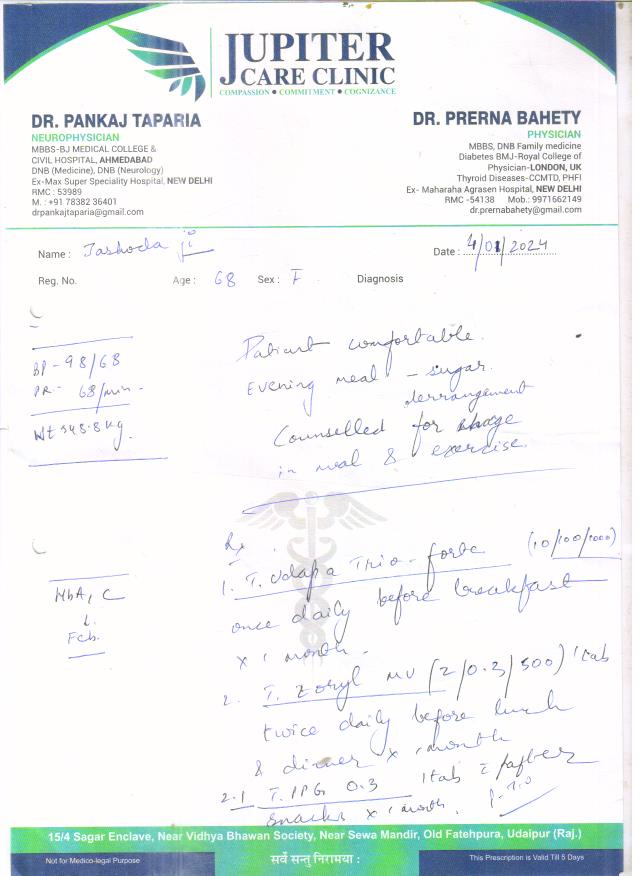 JUPITER
CARE CLINIC
COMPASSION • COMMITMENT • COGNIZANCE
DR. PANKAJ TAPARIA
NEUROPHYSICIAN
MBBS-BJ MEDICAL COLLEGE &
CIVIL HOSPITAL, AHMEDABAD
DNB (Medicine), DNB (Neurology)
Ex-Max Super Speciality Hospital, NEW DELHI
RMC : 53989
M. : +91 78382 36401
drpankajtaparia@gmail.com
DR. PRERNA BAHETY
PHYSICIAN
MBBS, DNB Family medicine
Diabetes BMJ-Royal College of
Physician-LONDON, UK
Thyroid Diseases-CCMTD, PHFI
Ex- Maharaha Agrasen Hospital, NEW DELHI
RMC -54138 Mob.: 9971662149
dr.prernabahety@gmail.com
Name : Jashoda ji
Date : 4/01/2024
Reg. No. Age : 68 Sex : F Diagnosis
BP - 98/68
PR - 68/min -
Wt 48.8 kg.
Patient comfortable.
Evening meal - sugar
derrangement
Counselled for change
in meal & exercise.
HbA1C
Feb.
Rx
1. T. Udapa Trio - forte (10/100/1000)
once daily before breakfast
x 1 month.
2. T. Zoryl MV (2/0.3/500) 1 tab
twice daily before lunch
& dinner x 1 month
2.1 T. PPG 0.3 1 tab
snacks x 1 month.
15/4 Sagar Enclave, Near Vidhya Bhawan Society, Near Sewa Mandir, Old Fatehpura, Udaipur (Raj.)
Not for Medico-legal Purpose
सर्वे सन्तु निरामया :
This Prescription is Valid Till 5 Days